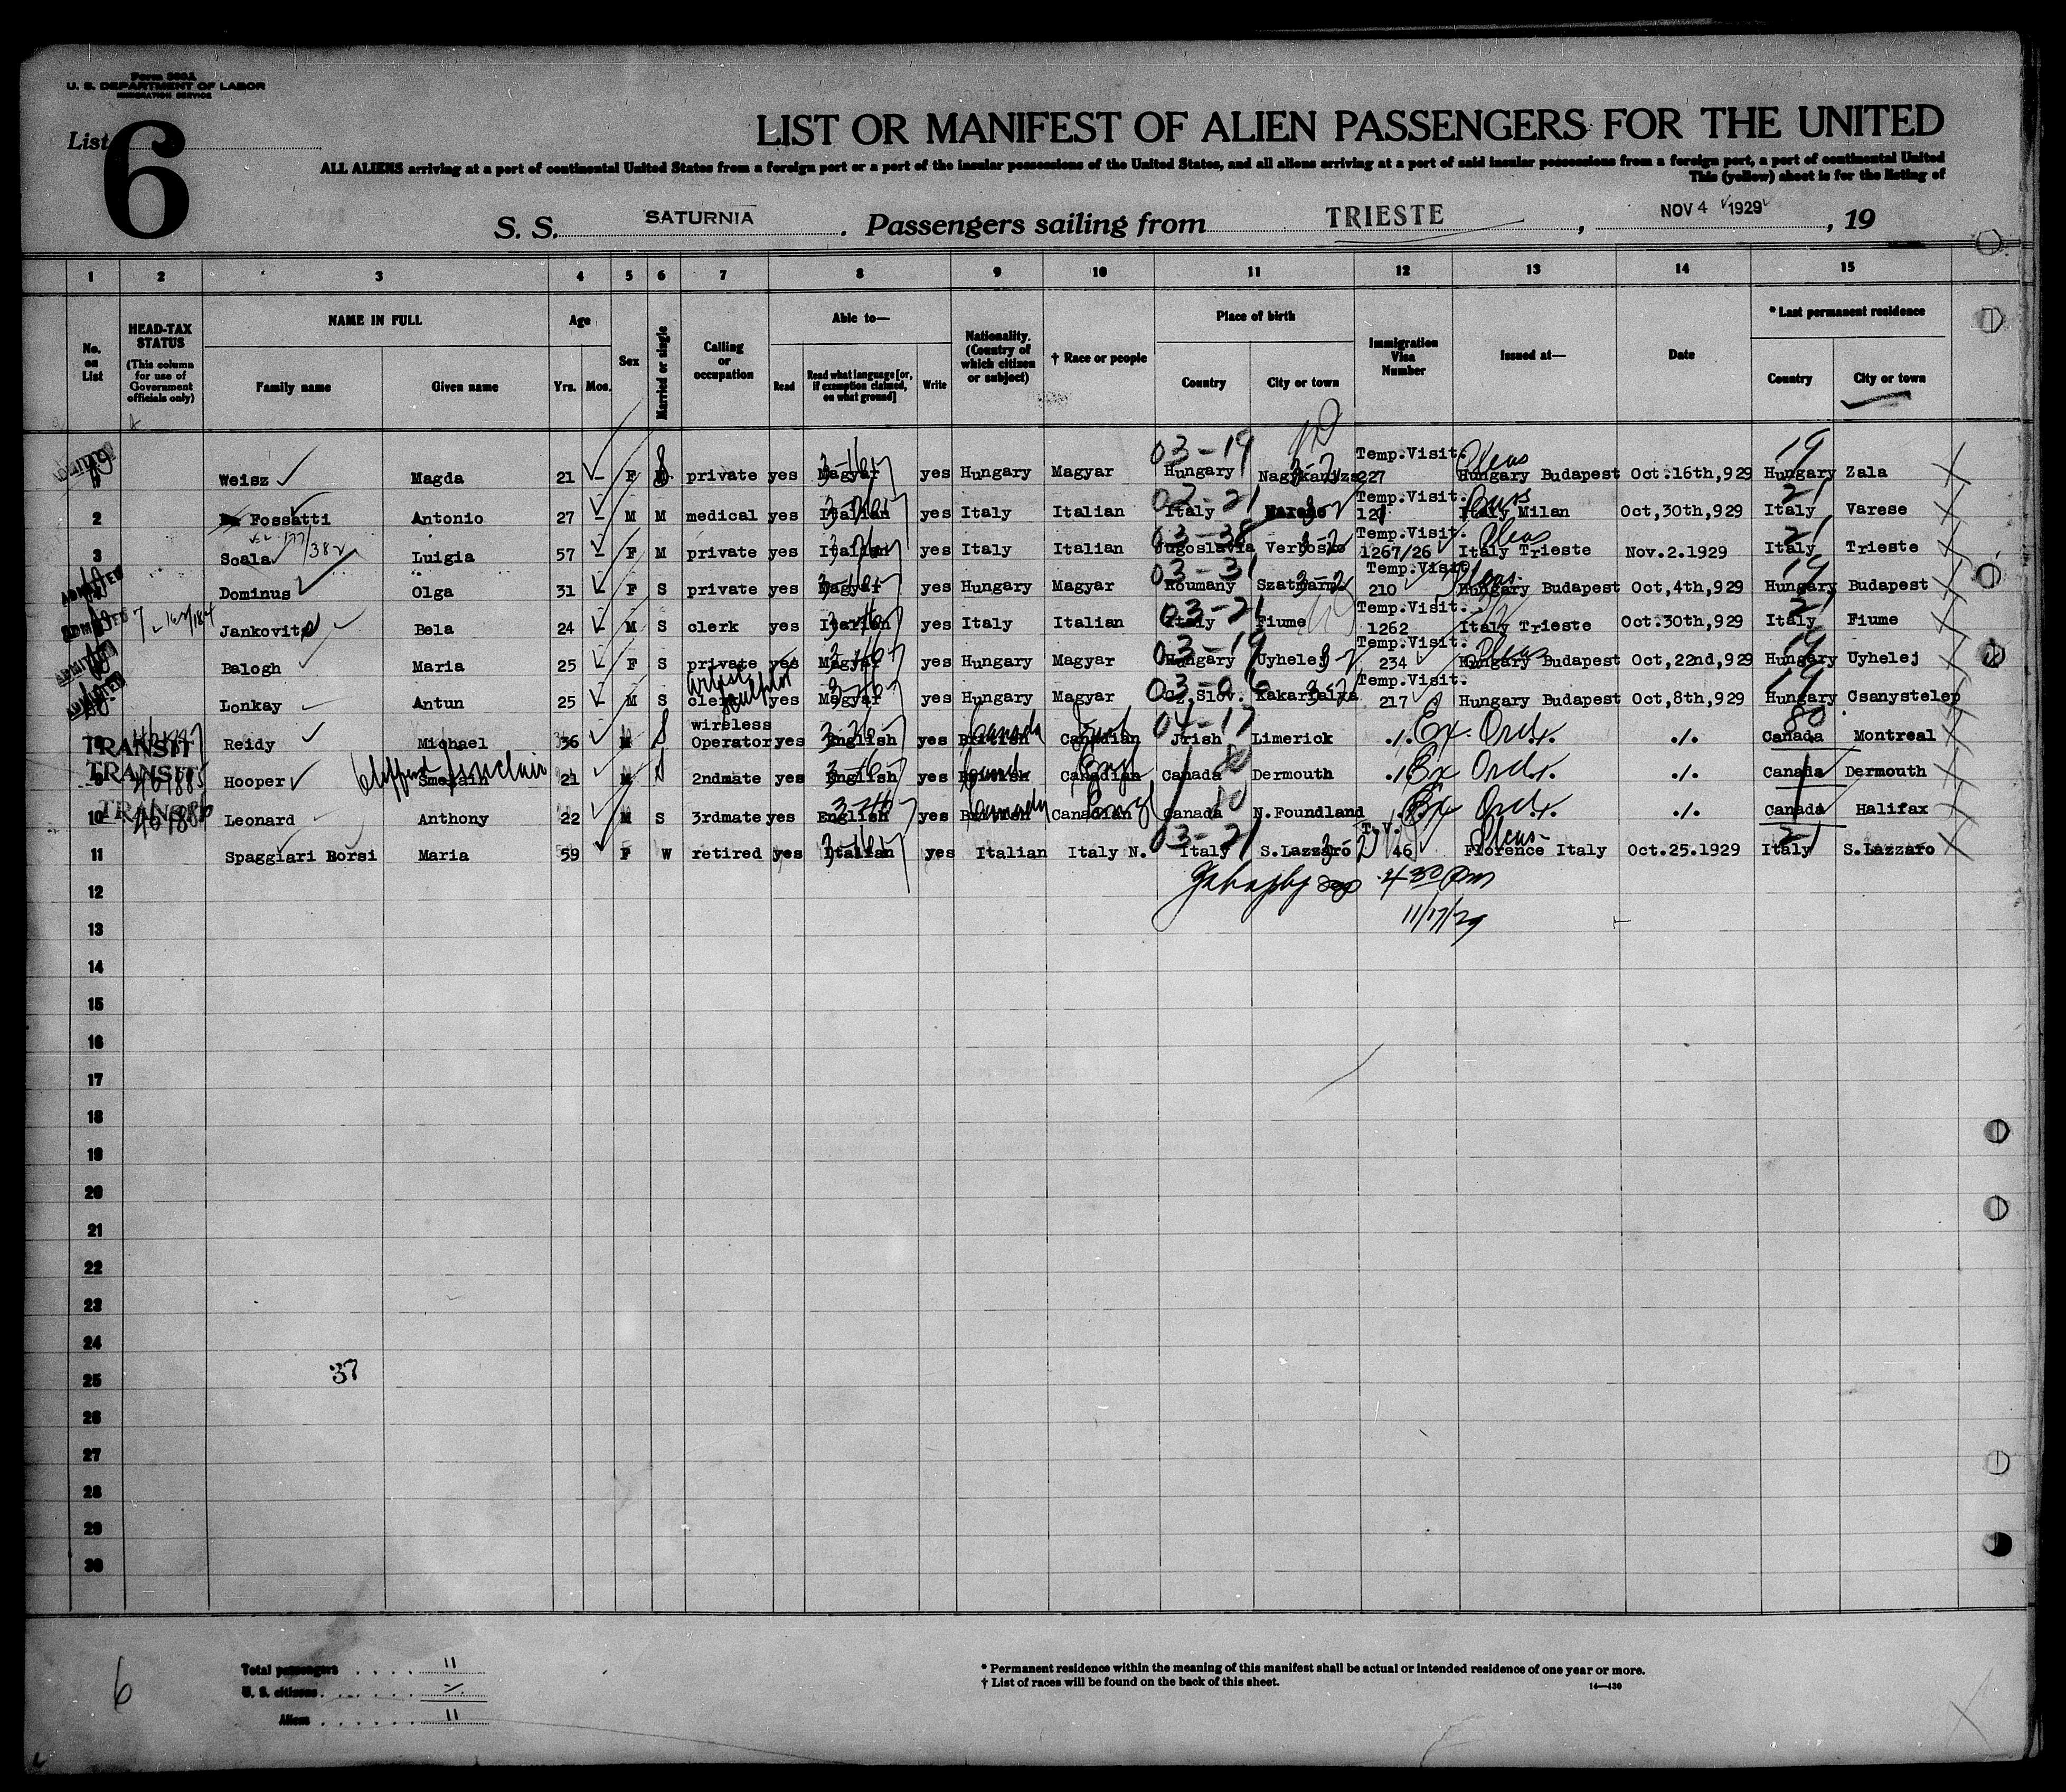 Form 500A
U. S. DEPARTMENT OF LABOR
IMMIGRATION SERVICE
List 6
LIST OR MANIFEST OF ALIEN PASSENGERS FOR THE UNITED
ALL ALIENS arriving at a port of continental United States from a foreign port or a port of the insular possessions of the United States, and all aliens arriving at a port of said insular possessions from a foreign port, a port of continental United
This (yellow) sheet is for the listing of
S. S. SATURNIA . Passengers sailing from TRIESTE , NOV 4 1929 , 19
1 2 3 4 5 6 7 8 9 10 11 12 13 14 15
No. on List
HEAD-TAX STATUS (This column for use of Government officials only)
NAME IN FULL Family name Given name
Age Yrs. Mos.
Sex
Married or single
Calling or occupation
Able to— Read Read what language [or, if exemption claimed, on what ground] Write
Nationality. (Country of which citizen or subject)
† Race or people
Place of birth Country City or town
Immigration Visa Number
Issued at—
Date
* Last permanent residence Country City or town
03-19 Temp.Visit. 19
Weisz Magda 21 F S private yes Magyar yes Hungary Magyar Hungary Nagykanizsa 227 Hungary Budapest Oct.16th,929 Hungary Zala
Temp.Visit. 21
2 Fossatti Antonio 27 M M medical yes Italian yes Italy Italian Italy Varese 121 Italy Milan Oct,30th,929 Italy Varese
177/382 03-38 Temp.Visit. 21
3 Scala Luigia 57 F M private yes Italian yes Italy Italian Jugoslavia 1267/26 Italy Trieste Nov.2.1929 Italy Trieste
ADMITTED 03-31 Temp.Visit. 19
Dominus Olga 31 F S private yes Magyar yes Hungary Magyar Roumany Szatmar 210 Hungary Budapest Oct,4th,929 Hungary Budapest
ADMITTED 03-21 Temp.Visit. 21
Jankovits Bela 24 M S clerk yes Italian yes Italy Italian Italy Fiume 1262 Italy Trieste Oct.30th,929 Italy Fiume
ADMITTED 03-19 Temp.Visit. 19
Balogh Maria 25 F S private yes Magyar yes Hungary Magyar Hungary Uyhelej 234 Hungary Budapest Oct,22nd,929 Hungary Uyhelej
ADMITTED Artist sculptor 03-06 Temp.Visit. 19
Lonkay Antun 25 M S clerk yes Magyar yes Hungary Magyar Cz.Slov. 217 Hungary Budapest Oct,8th,929 Hungary Csanystelep
TRANSIT wireless Canada 04-17 80
Reidy Michael 36 M S Operator yes English yes British Canadian Jrish Limerick ./. Ex. Ords. ./. Canada Montreal
TRANSIT 461885 Clifford Sinclair
Hooper Smegain 21 M S 2ndmate yes English yes British Canadian Canada Dermouth ./. Ex Ords. ./. Canada Dermouth
TRANSIT 461886
10 Leonard Anthony 22 M S 3rdmate yes English yes British Canadian Canada N.Foundland ./. Ex Ords. ./. Canada Halifax
03-21 T.V. 21
11 Spaggiari Borsi Maria 59 F W retired yes Italian yes Italian Italy N. Italy S.Lazzaro 46 Florence Italy Oct.25.1929 Italy S.Lazzaro
12 4 30 Pm
13 11/17/29
14
15
16
17
18
19
20
21
22
23
24
25 37
26
27
28
29
30
6
Total passengers . . . . 11
U. S. citizens . . . . ./.
Aliens . . . . . . 11
* Permanent residence within the meaning of this manifest shall be actual or intended residence of one year or more.
† List of races will be found on the back of this sheet. 14—430